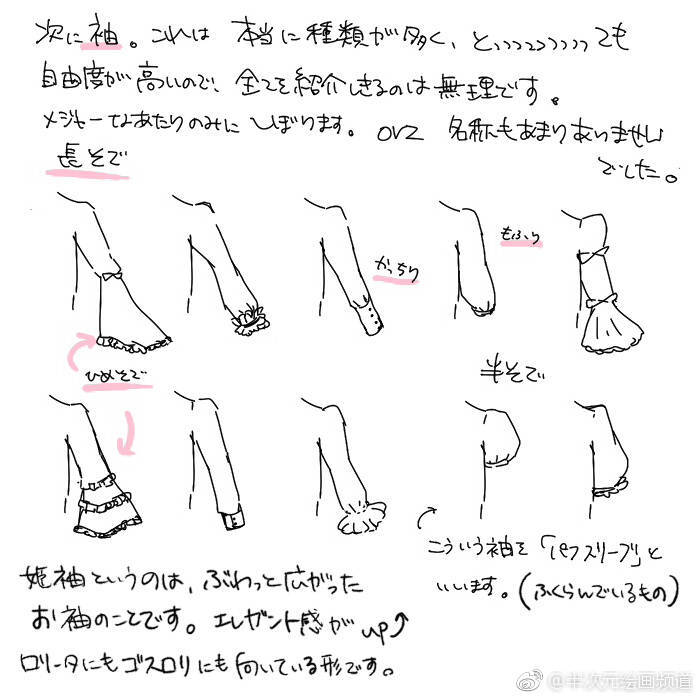 次に袖。これは本当に種類が多く、と、、、、、、、、、ても
自由度が高いので、全てを紹介しきるのは無理です。
メジャーなあたりのみにしぼります。orz 名称もあまりありません
でした。
長そで
かっちり
もふり
ひめそで
半そで
こういう袖を「パフスリーブ」と
いいます。(ふくらんでいるもの)
姫袖というのは、ぶわっと広がった
お袖のことです。エレガント感がup
ロリータにもゴスロリにも向いている形です。
@半次元绘画频道